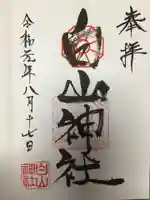 奉拝
白山神社
令和元年八月十七日
白山
神社